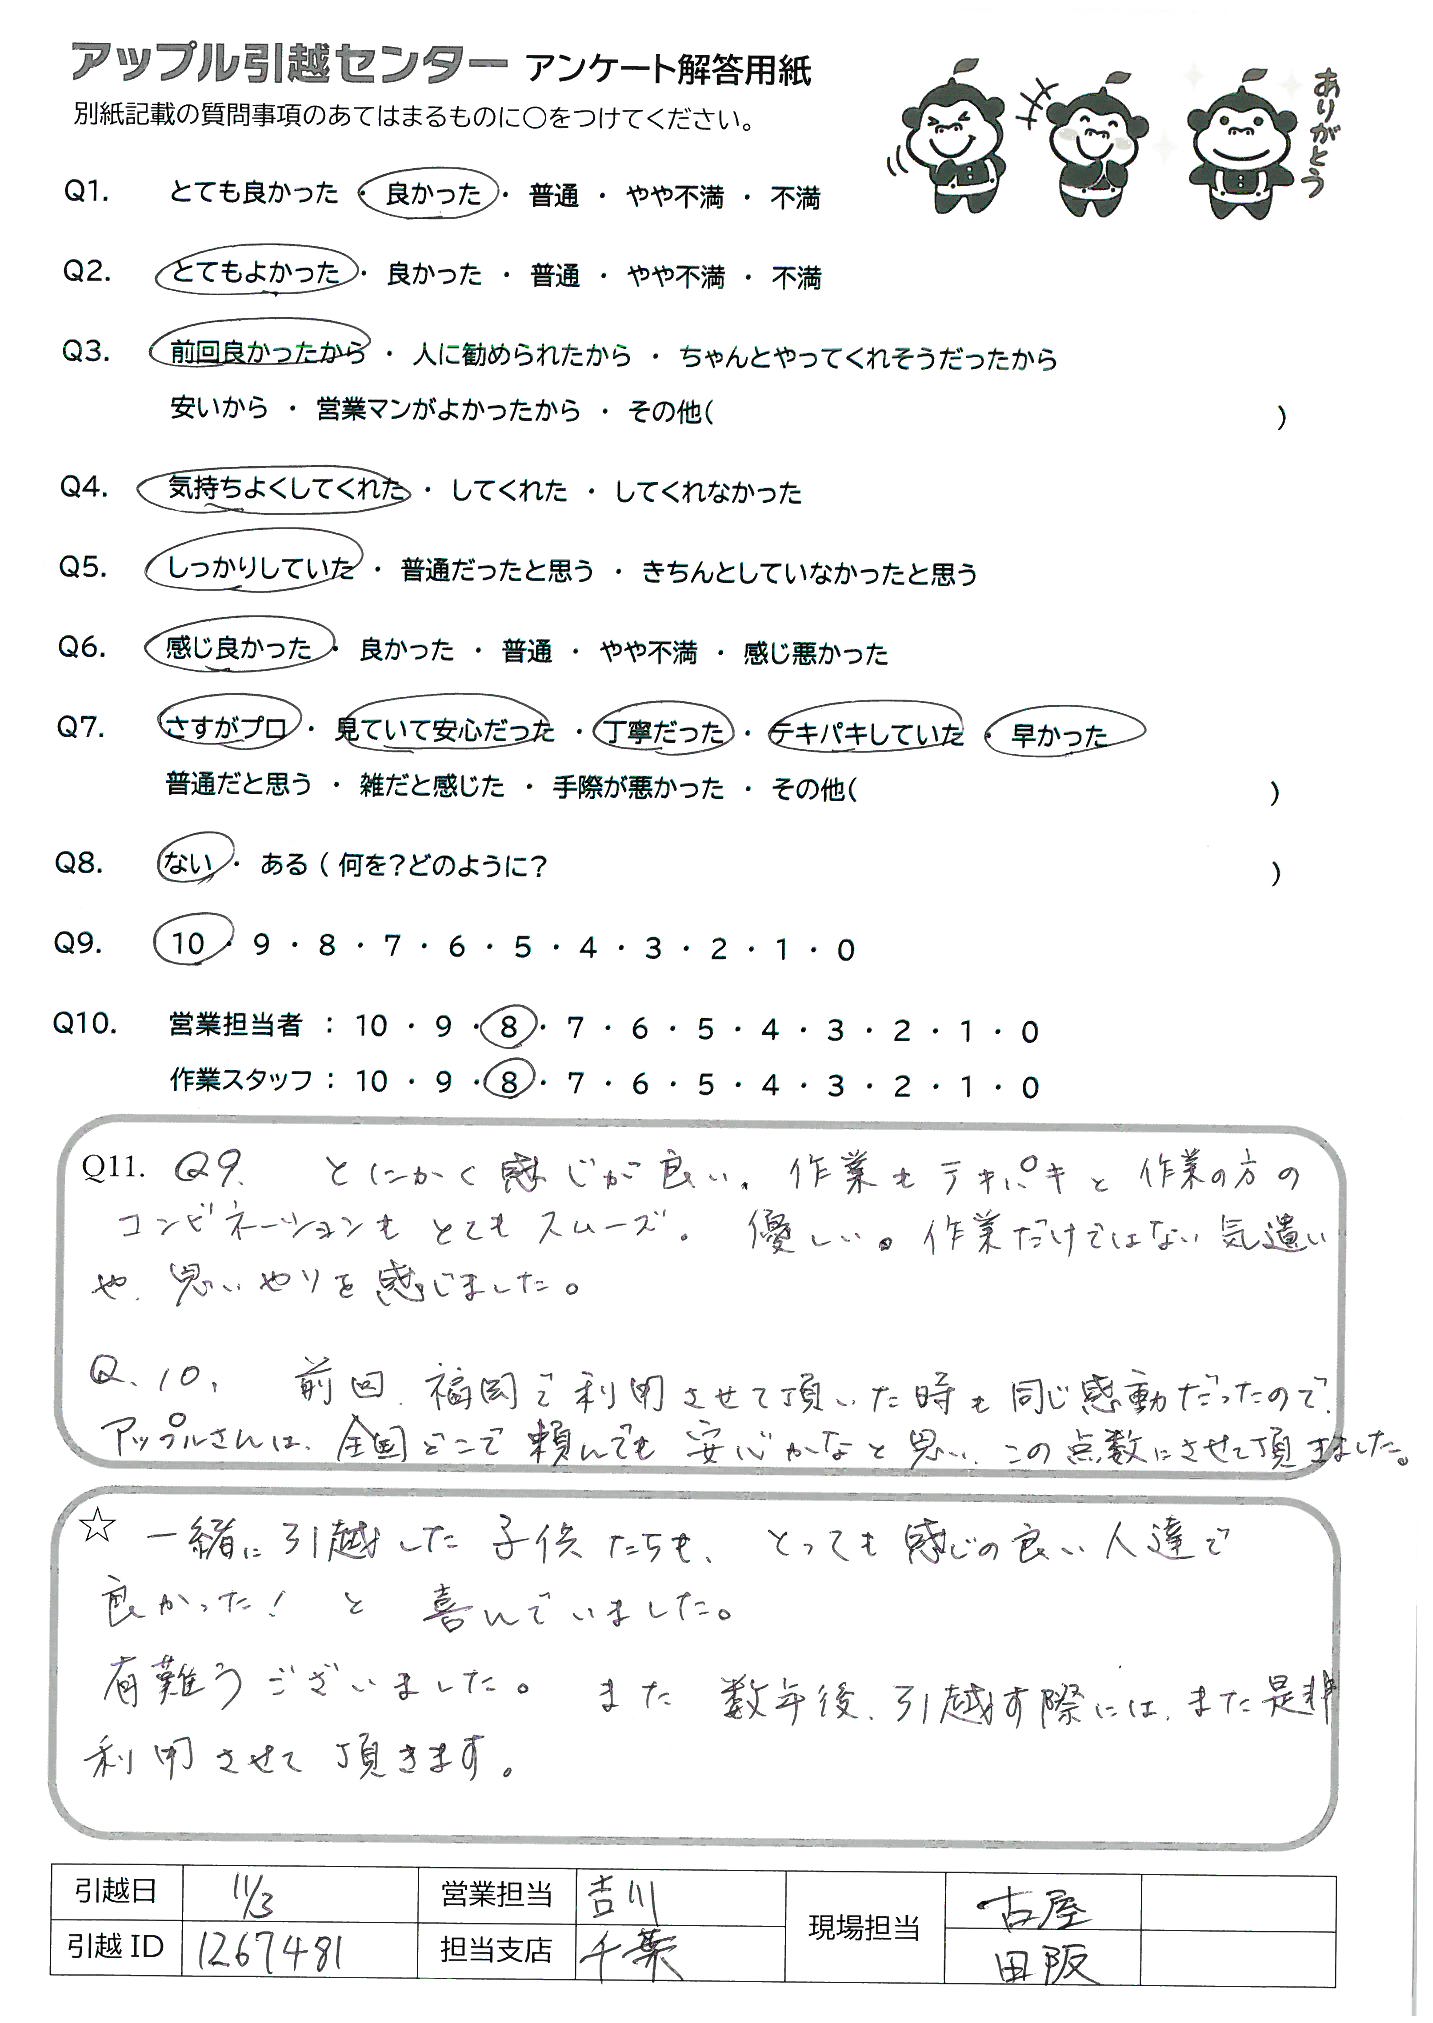 アップル引越センター アンケート解答用紙
別紙記載の質問事項のあてはまるものに○をつけてください。
ありがとう
Q1. とても良かった ・ 良かった ・ 普通 ・ やや不満 ・ 不満
Q2. とてもよかった ・ 良かった ・ 普通 ・ やや不満 ・ 不満
Q3. 前回良かったから ・ 人に勧められたから ・ ちゃんとやってくれそうだったから
安いから ・ 営業マンがよかったから ・ その他( )
Q4. 気持ちよくしてくれた ・ してくれた ・ してくれなかった
Q5. しっかりしていた ・ 普通だったと思う ・ きちんとしていなかったと思う
Q6. 感じ良かった ・ 良かった ・ 普通 ・ やや不満 ・ 感じ悪かった
Q7. さすがプロ ・ 見ていて安心だった ・ 丁寧だった ・ テキパキしていた ・ 早かった
普通だと思う ・ 雑だと感じた ・ 手際が悪かった ・ その他( )
Q8. ない ・ ある ( 何を?どのように? )
Q9. 10 ・ 9 ・ 8 ・ 7 ・ 6 ・ 5 ・ 4 ・ 3 ・ 2 ・ 1 ・ 0
Q10. 営業担当者 : 10 ・ 9 ・ 8 ・ 7 ・ 6 ・ 5 ・ 4 ・ 3 ・ 2 ・ 1 ・ 0
作業スタッフ : 10 ・ 9 ・ 8 ・ 7 ・ 6 ・ 5 ・ 4 ・ 3 ・ 2 ・ 1 ・ 0
Q11. Q9. とにかく感じが良い。作業もテキパキと作業の方の
コンビネーションもとてもスムーズ。優しい。作業だけではない気遣い
や、思いやりを感じました。
Q.10. 前回、福岡で利用させて頂いた時も同じ感動だったので、
アップルさんは、全国どこで頼んでも安心かなと思い、この点数にさせて頂きました。
☆ 一緒に引越した子供たちも、とっても感じの良い人達で
良かった!と喜んでいました。
有難うございました。また数年後、引越す際には、また是非
利用させて頂きます。
引越日 11/3 営業担当 吉川 現場担当 古屋
引越ID 1267481 担当支店 千葉 田阪